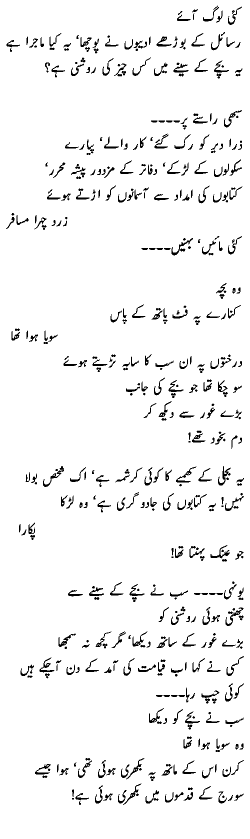 کئی لوگ آئے
رسائل کے بوڑھے ادیبوں نے پوچھا' یہ کیا ماجرا ہے
یہ بچے کے سینے میں کس چیز کی روشنی ہے؟
سبھی راستے پر۔۔۔۔
ذرا دیر کو رک گئے' کار والے' پیارے
سکولوں کے لڑکے' دفاتر کے مزدور پیشہ محرر'
کتابوں کی امداد سے آسمانوں کو اڑتے ہوئے
زرد چہرا مسافر
کئی مائیں' بہنیں۔۔۔۔
وہ بچہ
کنارے پہ فٹ پاتھ کے پاس
سویا ہوا تھا
درختوں پہ ان سب کا سایہ تڑپتے ہوئے
سو چکا تھا جو بچے کی جانب
بڑے غور سے دیکھ کر
دم بخود تھے!
یہ بجلی کے کھمبے کا کوئی کرشمہ ہے' اک شخص بولا
نہیں! یہ کتابوں کی جادوگری ہے' وہ لڑکا
پکارا
جو عینک پہنتا تھا!
یونہی۔۔۔۔ سب نے بچے کے سینے سے
چھنتی ہوئی روشنی کو
بڑے غور کے ساتھ دیکھا' مگر کچھ نہ سمجھا
کسی نے کہا اب قیامت کی آمد کے دن آچکے ہیں
کوئی چپ رہا۔۔۔۔
سب نے بچے کو دیکھا
وہ سویا ہوا تھا
کرن اس کے ماتھ پہ بکھری ہوئی تھی' ہوا جیسے
سورج کے قدموں میں بکھری ہوئی ہے!